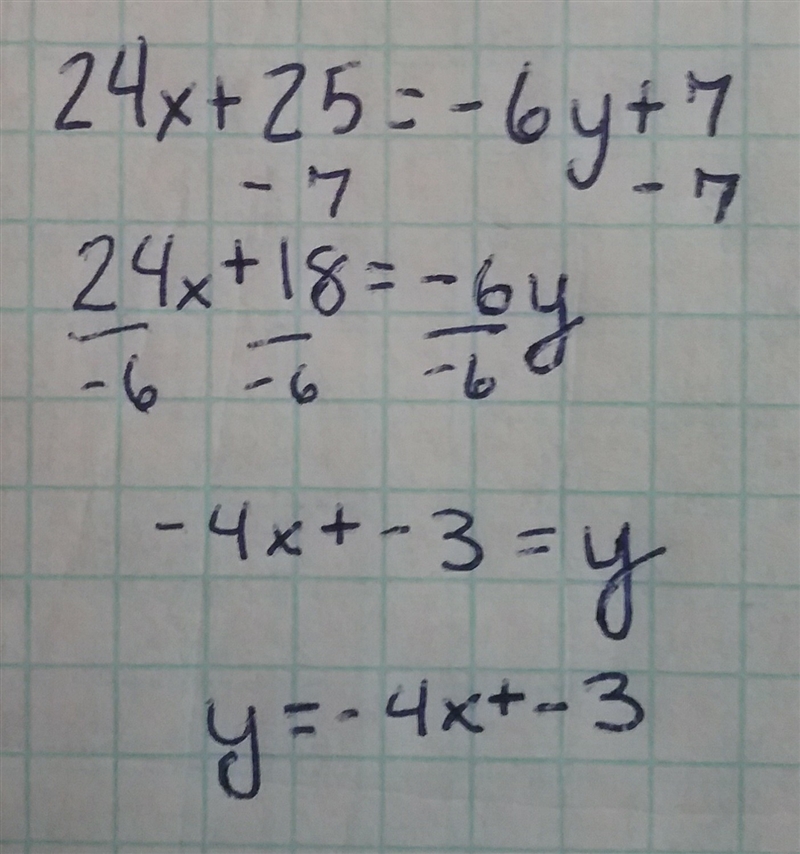 24x + 25 = -6y + 7
- 7 - 7
24x + 18 = -6y
-6 -6 -6
-4x + -3 = y
y = -4x + -3